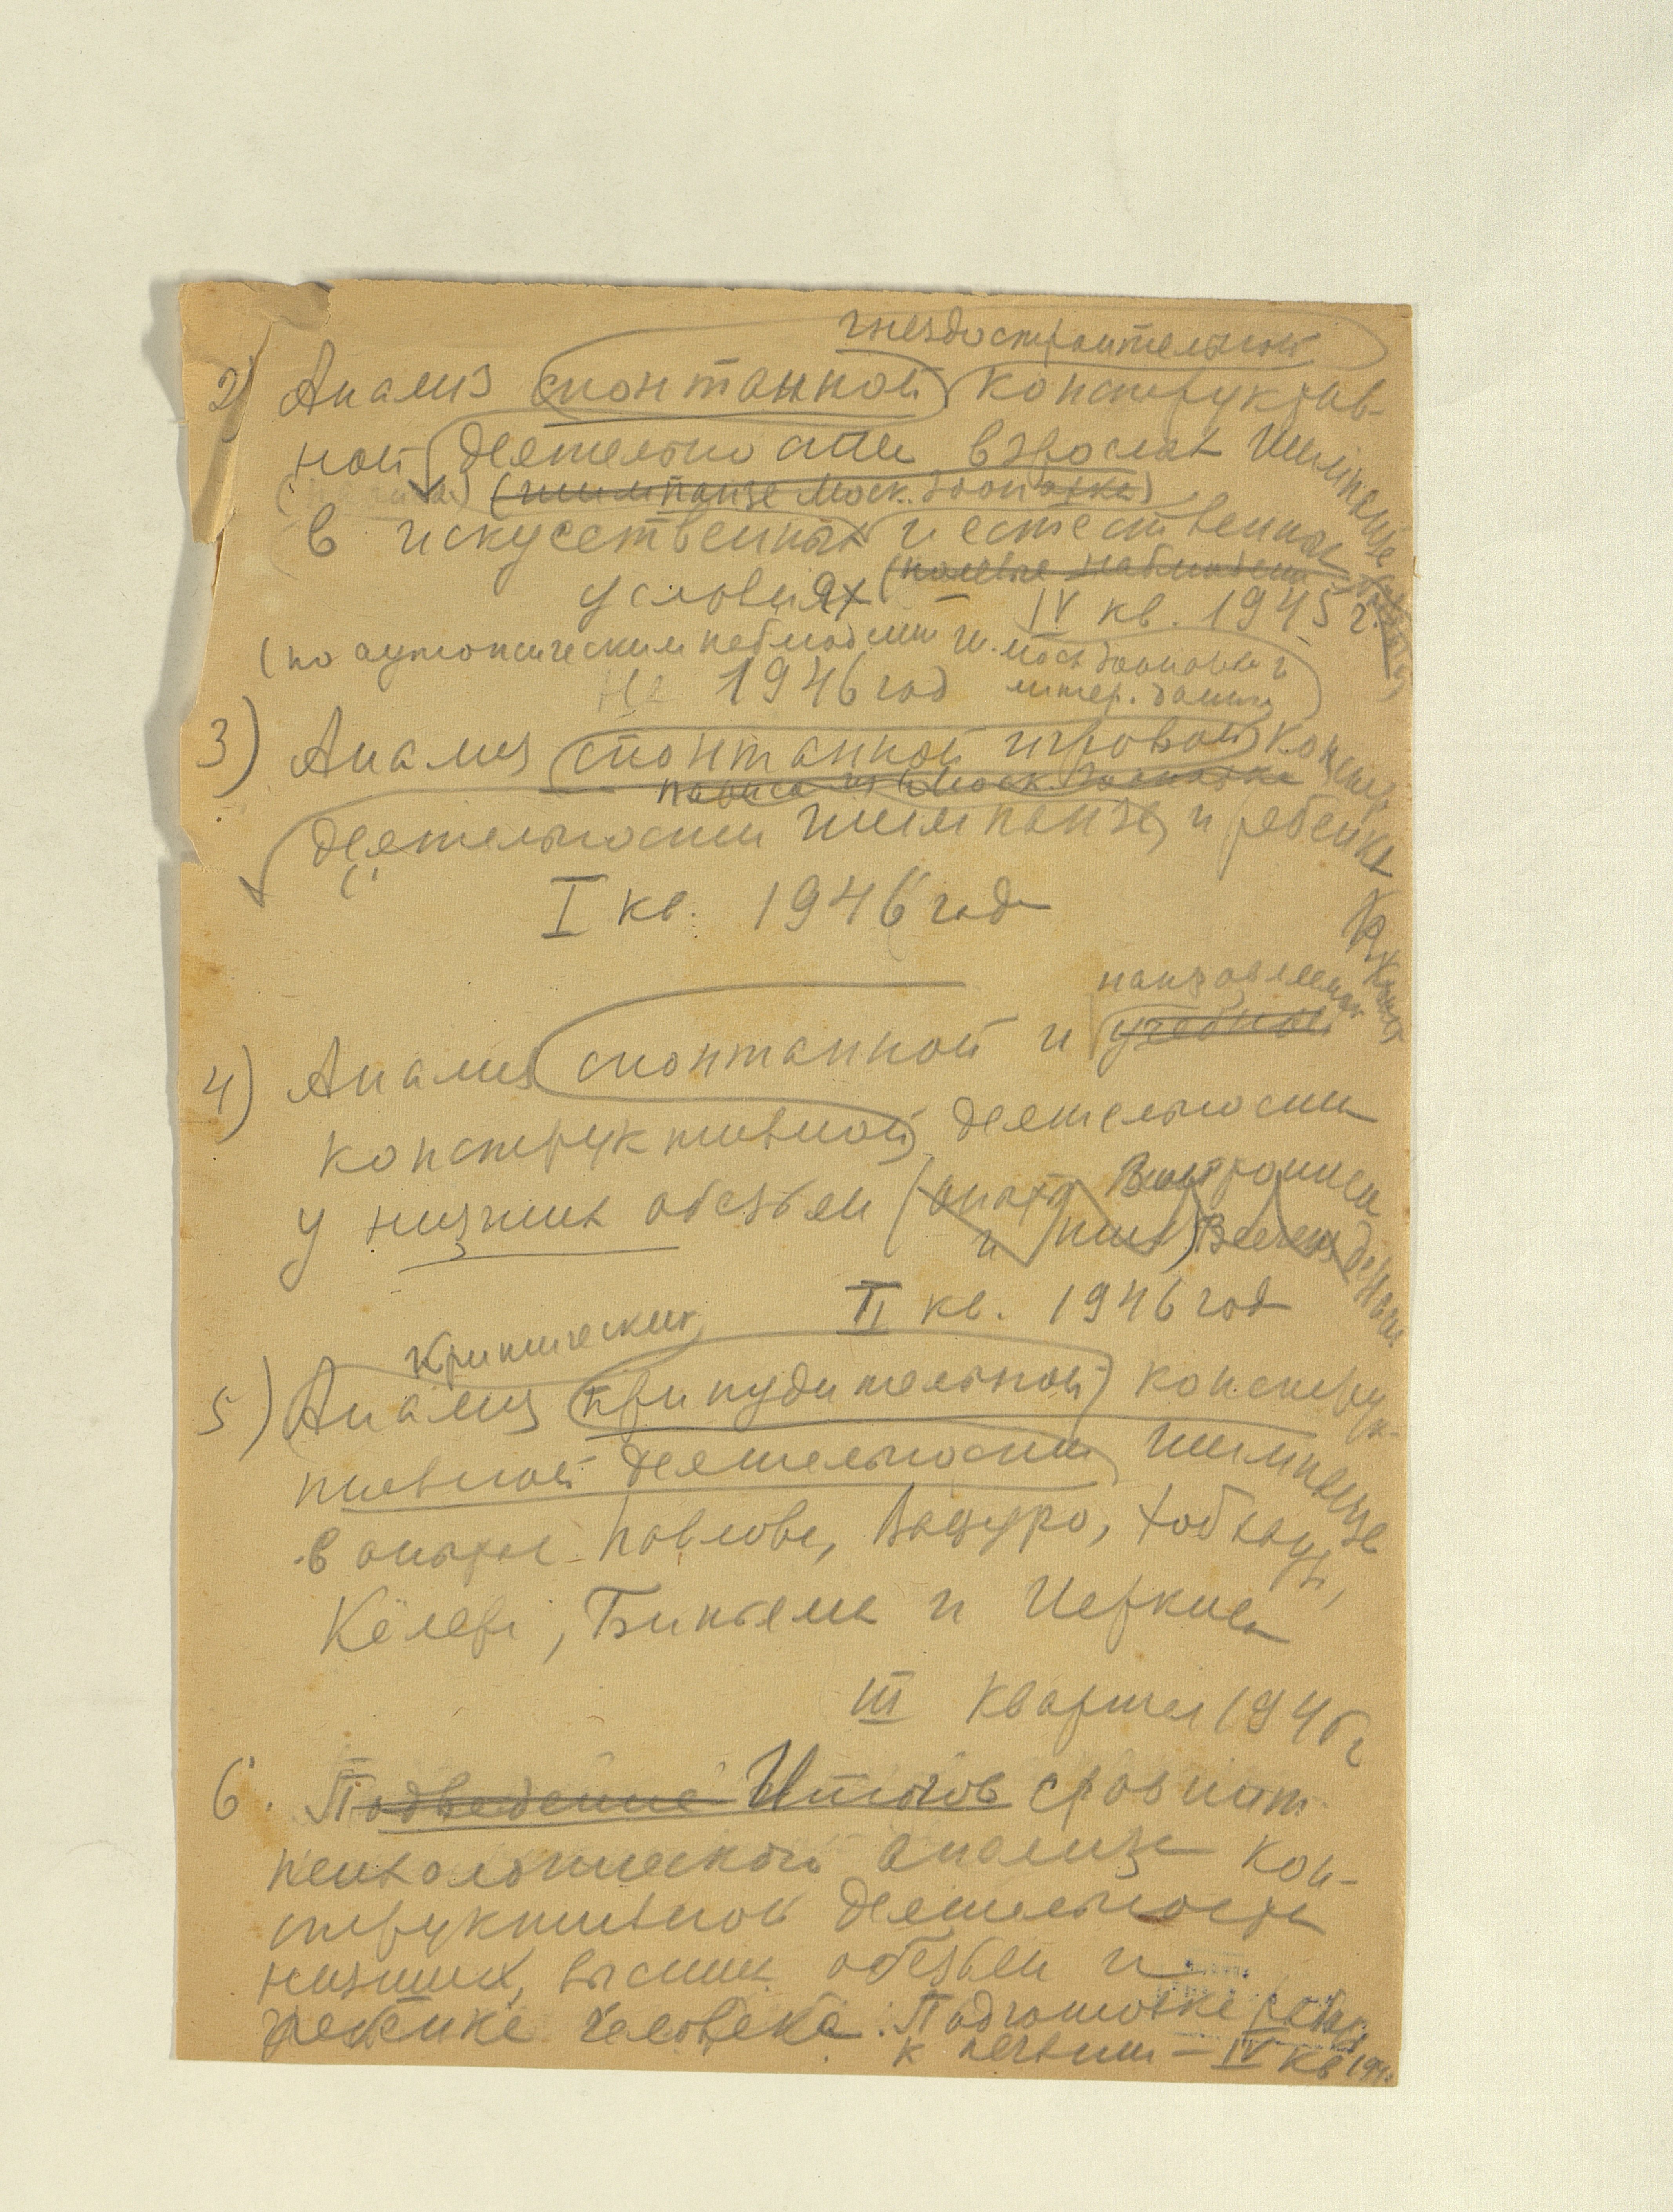 гнездостроительной
2) Анализ спонтанной конструктив-
ной деятельности взрослых шимпанзе
(шимпанзе Моск. Зоопарка)
в искусственных и естественных
(полевые наблюдения
условиях – IV кв. 1945 г.
(по аутопсическим наблюдениям ш. Моск Зоопарка и
На 1946 год литер. данным)
3) Анализ спонтанной игровой констр.
Моск. Зоопарка
деятельности шимпанзе и ребенка
I кв. 1946 год
направленной
4) Анализ спонтанной и учебной
конструктивной деятельности
у низших обезьян (
и
II кв. 1946 год
Критический
5) Анализ принудительной конструк-
тивной деятельности шимпанзе
в опытах Павлова, Вацуро, Хобхауза,
Кёлера, Бингама и Иеркиса
III квартал 1946 г
6. Подведение Итогов сравнит.
психологического анализа кон-
структивной деятельности
низших, высших обезьян и
ребенка человека. Подготовка работы
к печати – IV кв 194